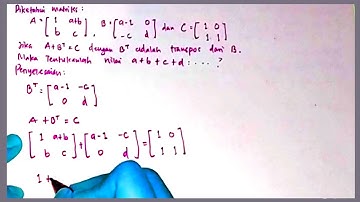 Diketahui matriks :
A = [1 a+b
b c], B = [a-1 0
-c d] dan C = [1 0
1 1]
Jika A + Bᵀ = C dengan Bᵀ adalah transpos dari B.
Maka Tentukanlah nilai a+b+c+d : ... ?
Penyelesaian :
Bᵀ = [a-1 -c
0 d]
A + Bᵀ = C
[1 a+b
b c] + [a-1 -c
0 d] = [1 0
1 1]
1 +